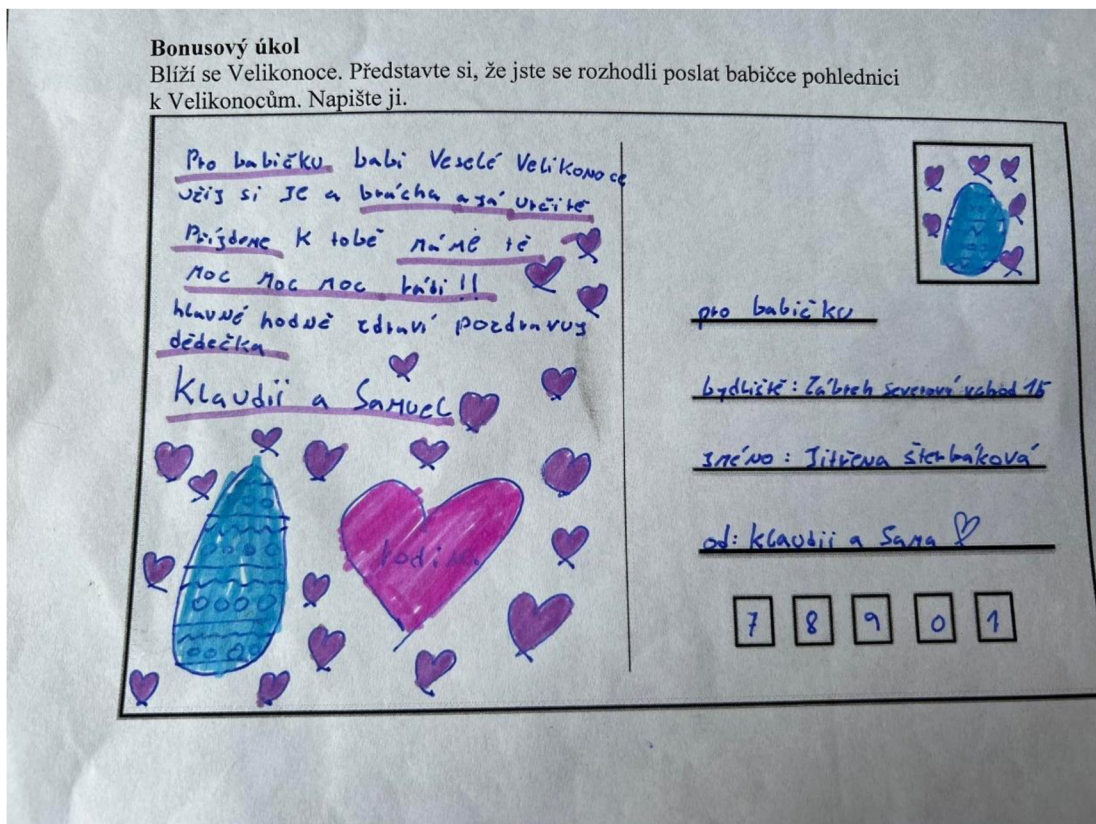 Bonusový úkol
Blíží se Velikonoce. Představte si, že jste se rozhodli poslat babičce pohlednici
k Velikonocům. Napište ji.
Pro babičku babi Veselé Velikonoce
užij si je a brácha a já určitě
Přijdeme k tobě máme tě
moc moc moc rádi!!
hlavně hodně zdraví pozdravuj
dědečka
Klaudii a Samuel
rodina
pro babičku
bydliště: Zábřeh severový 15
jméno: Jitřena šterbáková
od: klaudii a Sama
7 8 9 0 1